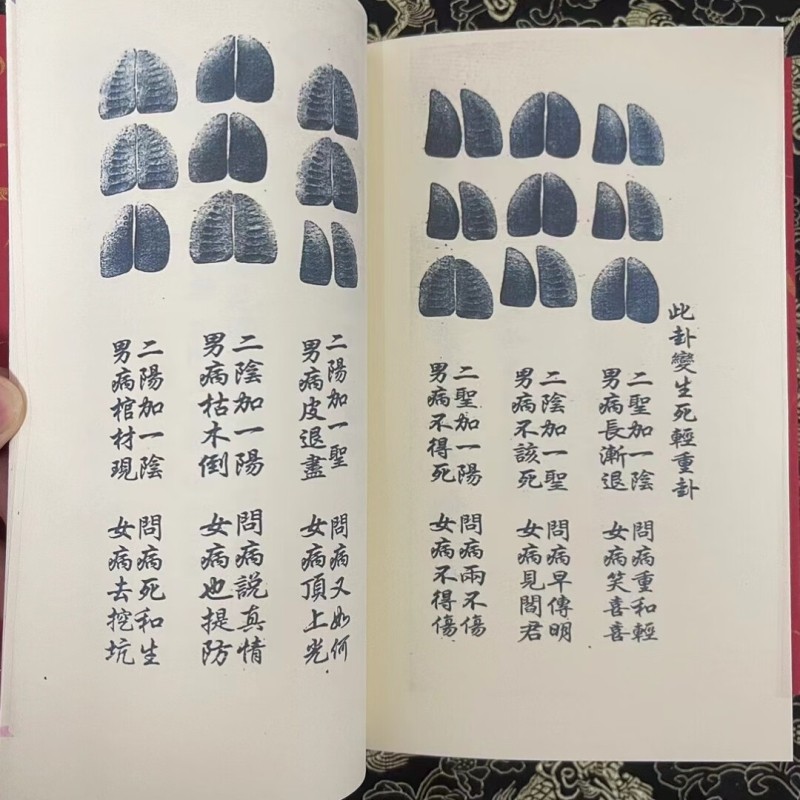 此卦變生死輕重卦
二聖加一陰 問病重和輕
男病長漸退 女病笑喜喜
二陰加一聖 問病早傳明
男病不該死 女病見閻君
二聖加一陽 問病兩不傷
男病不得死 女病不得傷
二陽加一聖 問病又如何
男病皮退盡 女病頂上光
二陰加一陽 問病說真情
男病枯木倒 女病也提防
二陽加一陰 問病死和生
男病棺材現 女病去挖坑